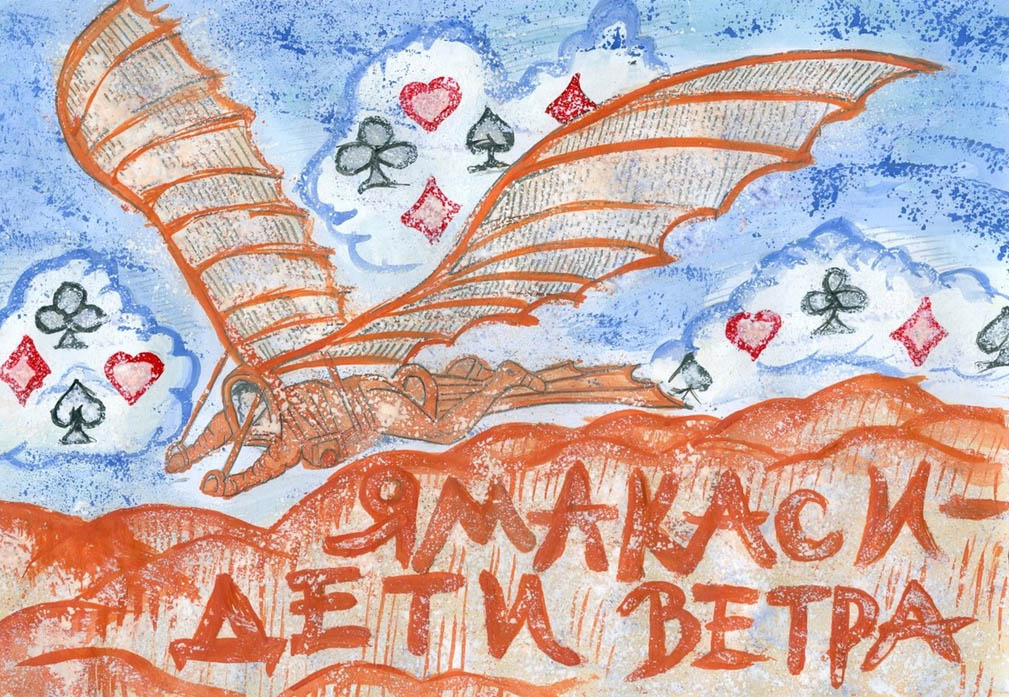 ЯМАКАСИ-
ДЕТИ ВЕТРА